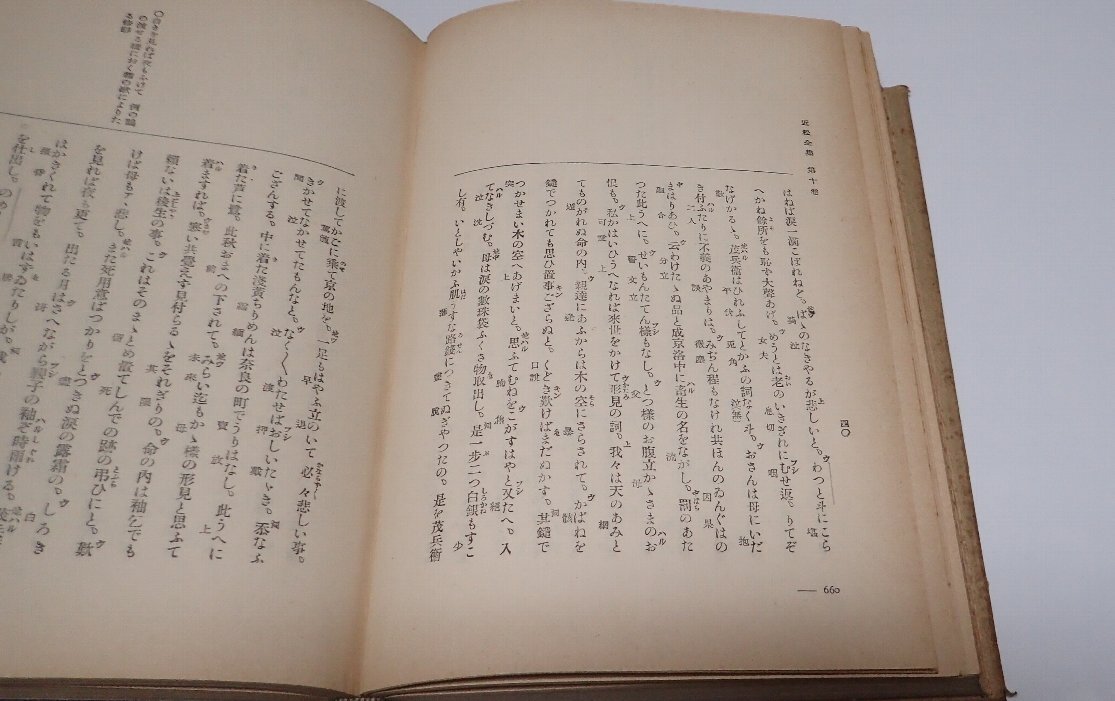 近松全集 第十卷
四〇
はねば涙一滴こぼれねど。ばゝのなきやるが悲しいと。わつと斗にこら
へかね餘所をも恥ず大聲あげ。めうとは老のいきぎれにむせ返。りてぞ
なげかるゝ。茂兵衞はひれふしてとかふの詞なく斗。おさんは母にいだ
き付ふたりに不義のあやまりは。みぢん程もなけれ共ほんのゐんぐはの
まはりあひ。云わけたゝぬ品と成京洛中に畜生の名をながし。罰のあた
つた此うへに。せいもんたてん樣もなし。とつ樣のお腹立かゝさまのお
恨も。私かはいひうへなれば來世をかけて形見の詞。我々は天のあみと
てものがれぬ命の内。親達にあふからは木の空にさらされて。かばねを
鑓でつかれても思ひ置事ござらぬと。くどき歎けばまだぬかす。其鑓で
つかせまい木の空へあげまいと。思ふてむねをこがすはやと又たへ。入
てなきしづむ。母は涙の數珠袋ふくさ物取出し。是一步二つ白銀もすこ
し有。いとしやいかふ肌うすな路錢につきてぬぎやつたの。是を茂兵衞
— 660
に渡してかごに乘て京の地を。一足もはやふ立のいて必々悲しい事。
きかせてなかせてたもんなと。なく〳〵わたせばおしいたゞき。忝なふ
ござんする。中に着た淺黄ちりめんは奈良の町でうりはなし。此うへに
着た芦に鷺。此秋おまへの下されて。みらい迄もかゝ樣の形見と思ふて
着ますれば。寒い共覺えず見付らるゝをそれぎりの。命の内は袖乞でも
頼ないは後生の事。これはそのまゝとめ置てしんでの跡の弔ひにと。歎
けば母もアヽ悲し。また死用意ばつかりをとつきぬ涙の露霜の。しろき
を見れば夜も更て。出たる月はさへながら親子の袖ぞ時雨ける。
はかきくれて物をもいはずゐたりしが。
を杜出し。
〇白きを見れば夜もふけて 鵲の
の渡せる橋におく霜の歌によりた
る修辭